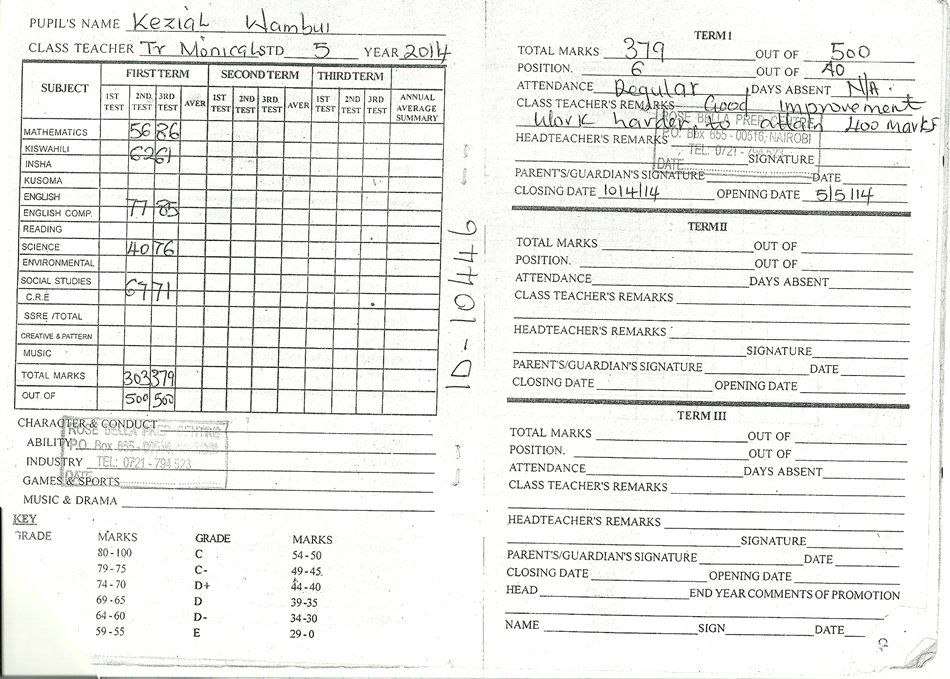 PUPIL'S NAME Keziah Wambui
CLASS TEACHER Tr Monicah STD 5 YEAR 2014
SUBJECT FIRST TERM SECOND TERM THIRD TERM
1ST TEST 2ND TEST 3RD TEST AVER 1ST TEST 2ND TEST 3RD TEST AVER 1ST TEST 2ND TEST 3RD TEST ANNUAL AVERAGE SUMMARY
MATHEMATICS 56 86
KISWAHILI 62 61
INSHA
KUSOMA
ENGLISH 77 85
ENGLISH COMP.
READING
SCIENCE 40 76
ENVIRONMENTAL
SOCIAL STUDIES 67 71
C.R.E
SSRE /TOTAL
CREATIVE & PATTERN
MUSIC
TOTAL MARKS 303 379
OUT OF 500 500
CHARACTER & CONDUCT
ROSE BELLA PREP CENTRE
ABILITY
P.O. Box 655 - 00516
INDUSTRY
TEL: 0721 - 794 523
DATE
GAMES & SPORTS
MUSIC & DRAMA
KEY
GRADE MARKS GRADE MARKS
80-100 C 54-50
79-75 C- 49-45
74-70 D+ 44-40
69-65 D 39-35
64-60 D- 34-30
59-55 E 29-0
ID-10446
TERM I
TOTAL MARKS 379 OUT OF 500
POSITION. 6 OUT OF 40
ATTENDANCE Regular DAYS ABSENT N/A.
CLASS TEACHER'S REMARKS Good improvement
work harder to attain 400 marks
ROSE BELLA PREP CENTRE
HEADTEACHER'S REMARKS
P.O. Box 655 - 00516, NAIROBI
TEL: 0721 - 794 523
DATE
SIGNATURE
PARENT'S/GUARDIAN'S SIGNATURE DATE
CLOSING DATE 10/4/14 OPENING DATE 5/5/14
TERM II
TOTAL MARKS OUT OF
POSITION. OUT OF
ATTENDANCE DAYS ABSENT
CLASS TEACHER'S REMARKS
HEADTEACHER'S REMARKS
SIGNATURE
PARENT'S/GUARDIAN'S SIGNATURE DATE
CLOSING DATE OPENING DATE
TERM III
TOTAL MARKS OUT OF
POSITION. OUT OF
ATTENDANCE DAYS ABSENT
CLASS TEACHER'S REMARKS
HEADTEACHER'S REMARKS
SIGNATURE
PARENT'S/GUARDIAN'S SIGNATURE DATE
CLOSING DATE OPENING DATE
HEAD END YEAR COMMENTS OF PROMOTION
NAME SIGN DATE